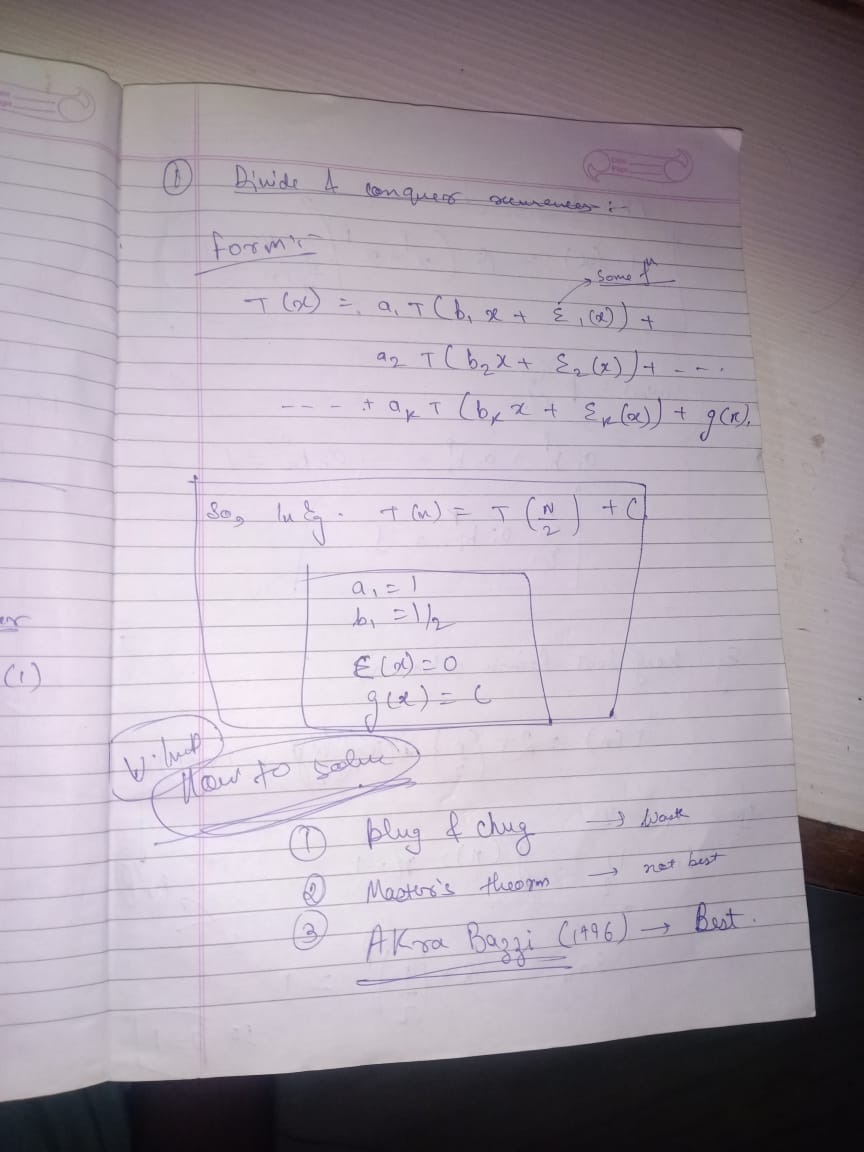 ① Divide & conquer recurrences :-
form :-
→ some fⁿ
T(x) = a₁ T(b₁ x + Ɛ₁(x)) +
a₂ T(b₂x + Ɛ₂(x)) + - - -
- - - - + aₖ T(bₖ x + Ɛₖ(x)) + g(x).
So, In Eg. T(n) = T(N/2) + C
a₁ = 1
b₁ = 1/2
Ɛ(x) = 0
g(x) = C
V. Imp
How to solve
① plug & chug →
② Master's theorm → not best
③ Akra Bazzi (1996) → Best.
er
(1)